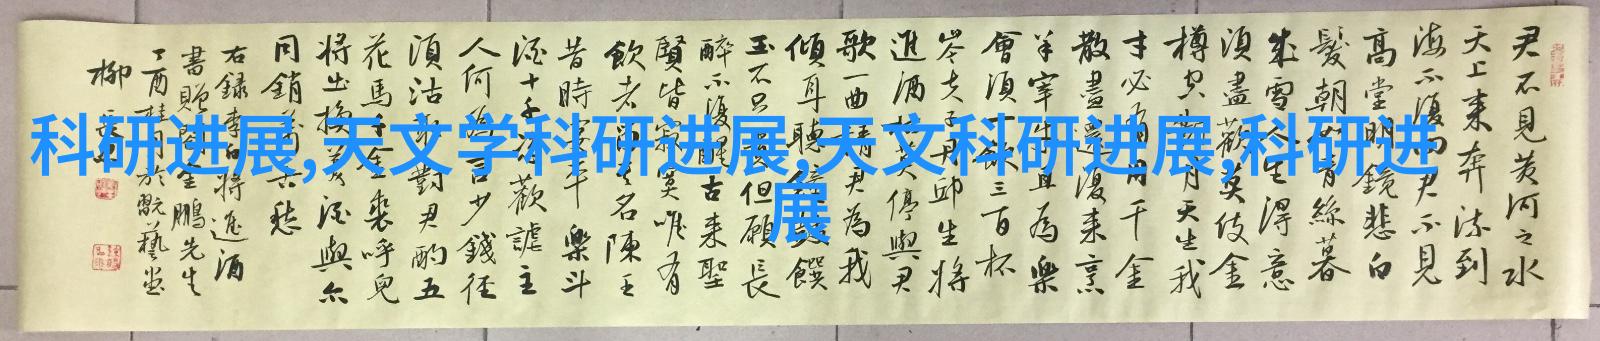 君不見黃河之水
天上來奔流到
海不復回君不見
高堂明鏡悲白
髮朝如青絲暮
成雪人生得意
須盡歡莫使金
樽空對月天生我
才必有用千金
散盡還復來烹
羊宰牛且為樂
會須一飲三百杯
岑夫子丹邱生將
進酒杯莫停與君
歌一曲請君為我
傾耳聽鐘鼓饌
玉不足貴但願長
醉不復醒古來聖
賢皆寂寞唯有
飲者留其名陳王
昔時宴平樂斗
酒十千恣歡謔主
人何為言少錢徑
須沽取對君酌五
花馬千金裘呼兒
將出換美酒與尔
同銷萬古愁
右錄李白將進酒
書贈金鵬先生
丁酉桂月於藝堂
柳
科研进展,天文学科研进展,天文科研进展,科研进
展